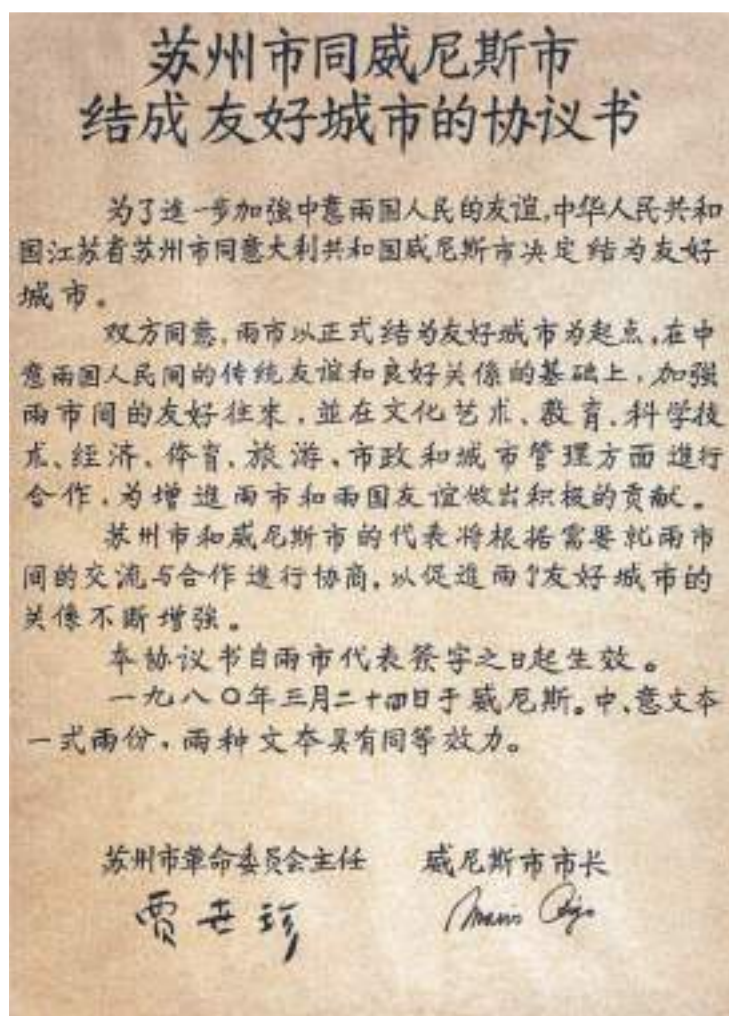 苏州市同威尼斯市
结成友好城市的协议书
为了進一步加強中意兩国人民的友谊,中华人民共和
国江苏省苏州市同意大利共和国威尼斯市决定结为友好
城市。
双方同意,兩市以正式结为友好城市为起点,在中
意兩国人民间的传统友谊和良好关係的基础上,加強
兩市间的友好往来,並在文化艺术、教育、科学技
术、经济、体育、旅游、市政和城市管理方面進行
合作,为增進兩市和兩国友谊做出积极的贡献。
苏州市和威尼斯市的代表将根据需要就兩市
间的交流与合作進行协商,以促進兩个友好城市的
关係不断增強。
本协议书自兩市代表签字之日起生效。
一九八〇年三月二十四日于威尼斯。中、意文本
一式兩份,兩种文本具有同等效力。
苏州市革命委员会主任 威尼斯市市长
贾世珍